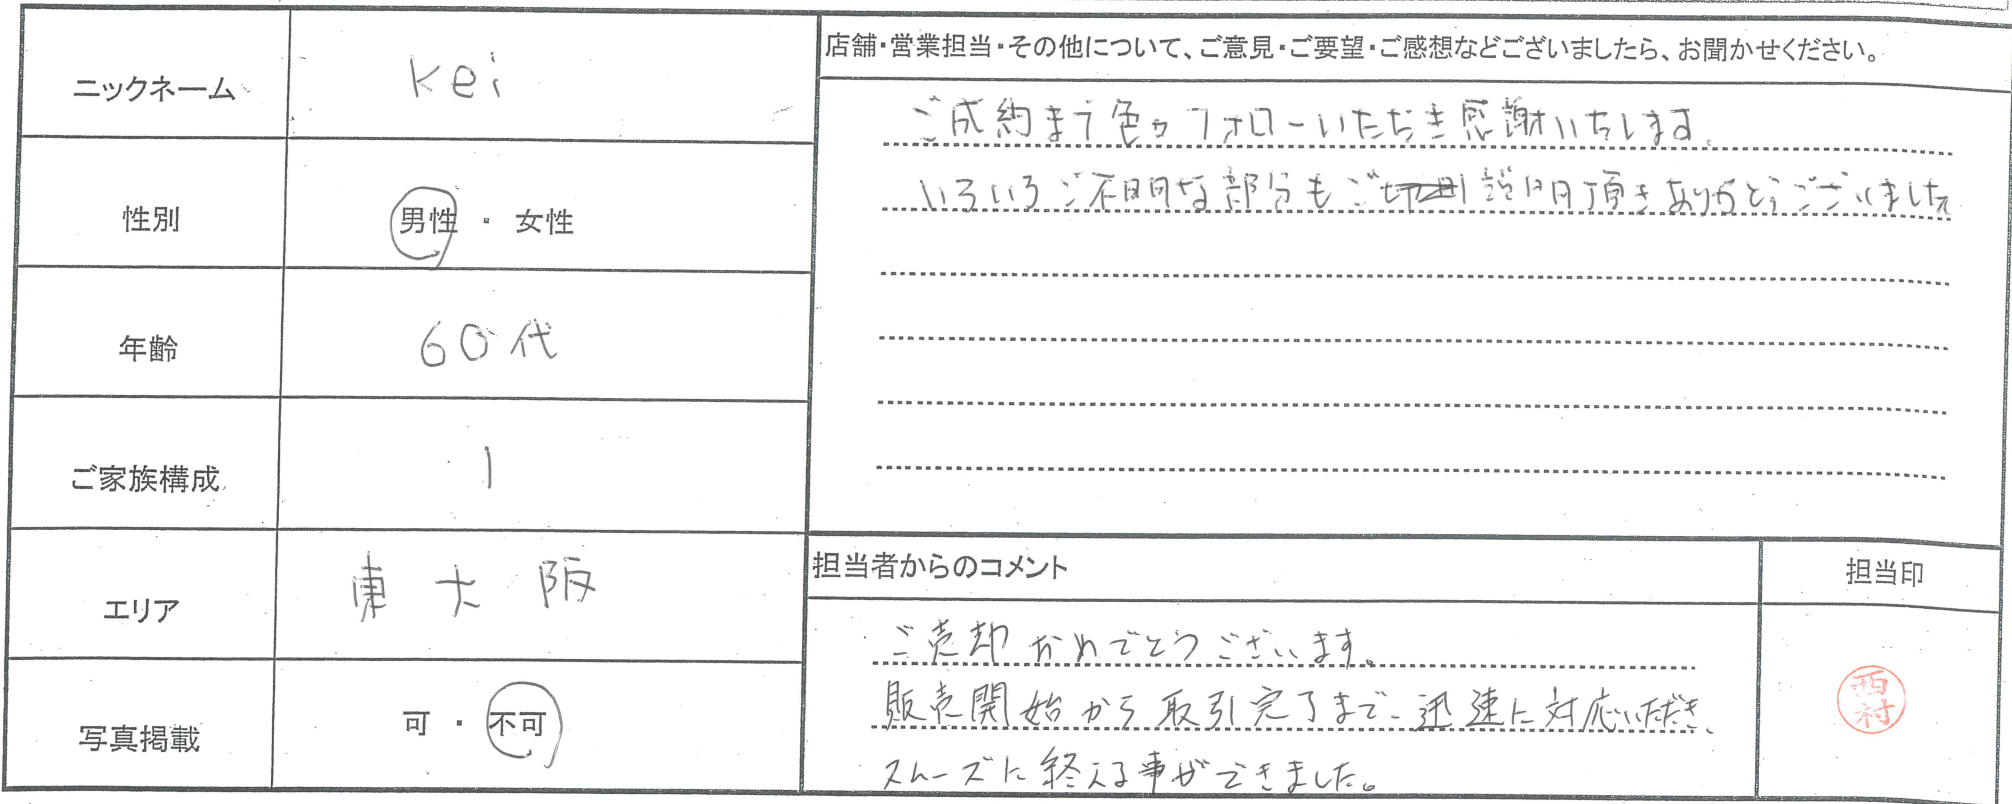 ニックネーム
kei
性別
男性 ・ 女性
年齢
60代
ご家族構成
1
エリア
東大阪
写真掲載
可 ・ 不可
店舗・営業担当・その他について、ご意見・ご要望・ご感想などございましたら、お聞かせください。
ご成約まで色々フォローいただき感謝いたします。
いろいろご不明な部分もご説明頂きありがとうございました
担当者からのコメント
ご売却おめでとうございます。
販売開始から取引完了まで、迅速に対応いただき、
スムーズに終える事ができました。
担当印
西村